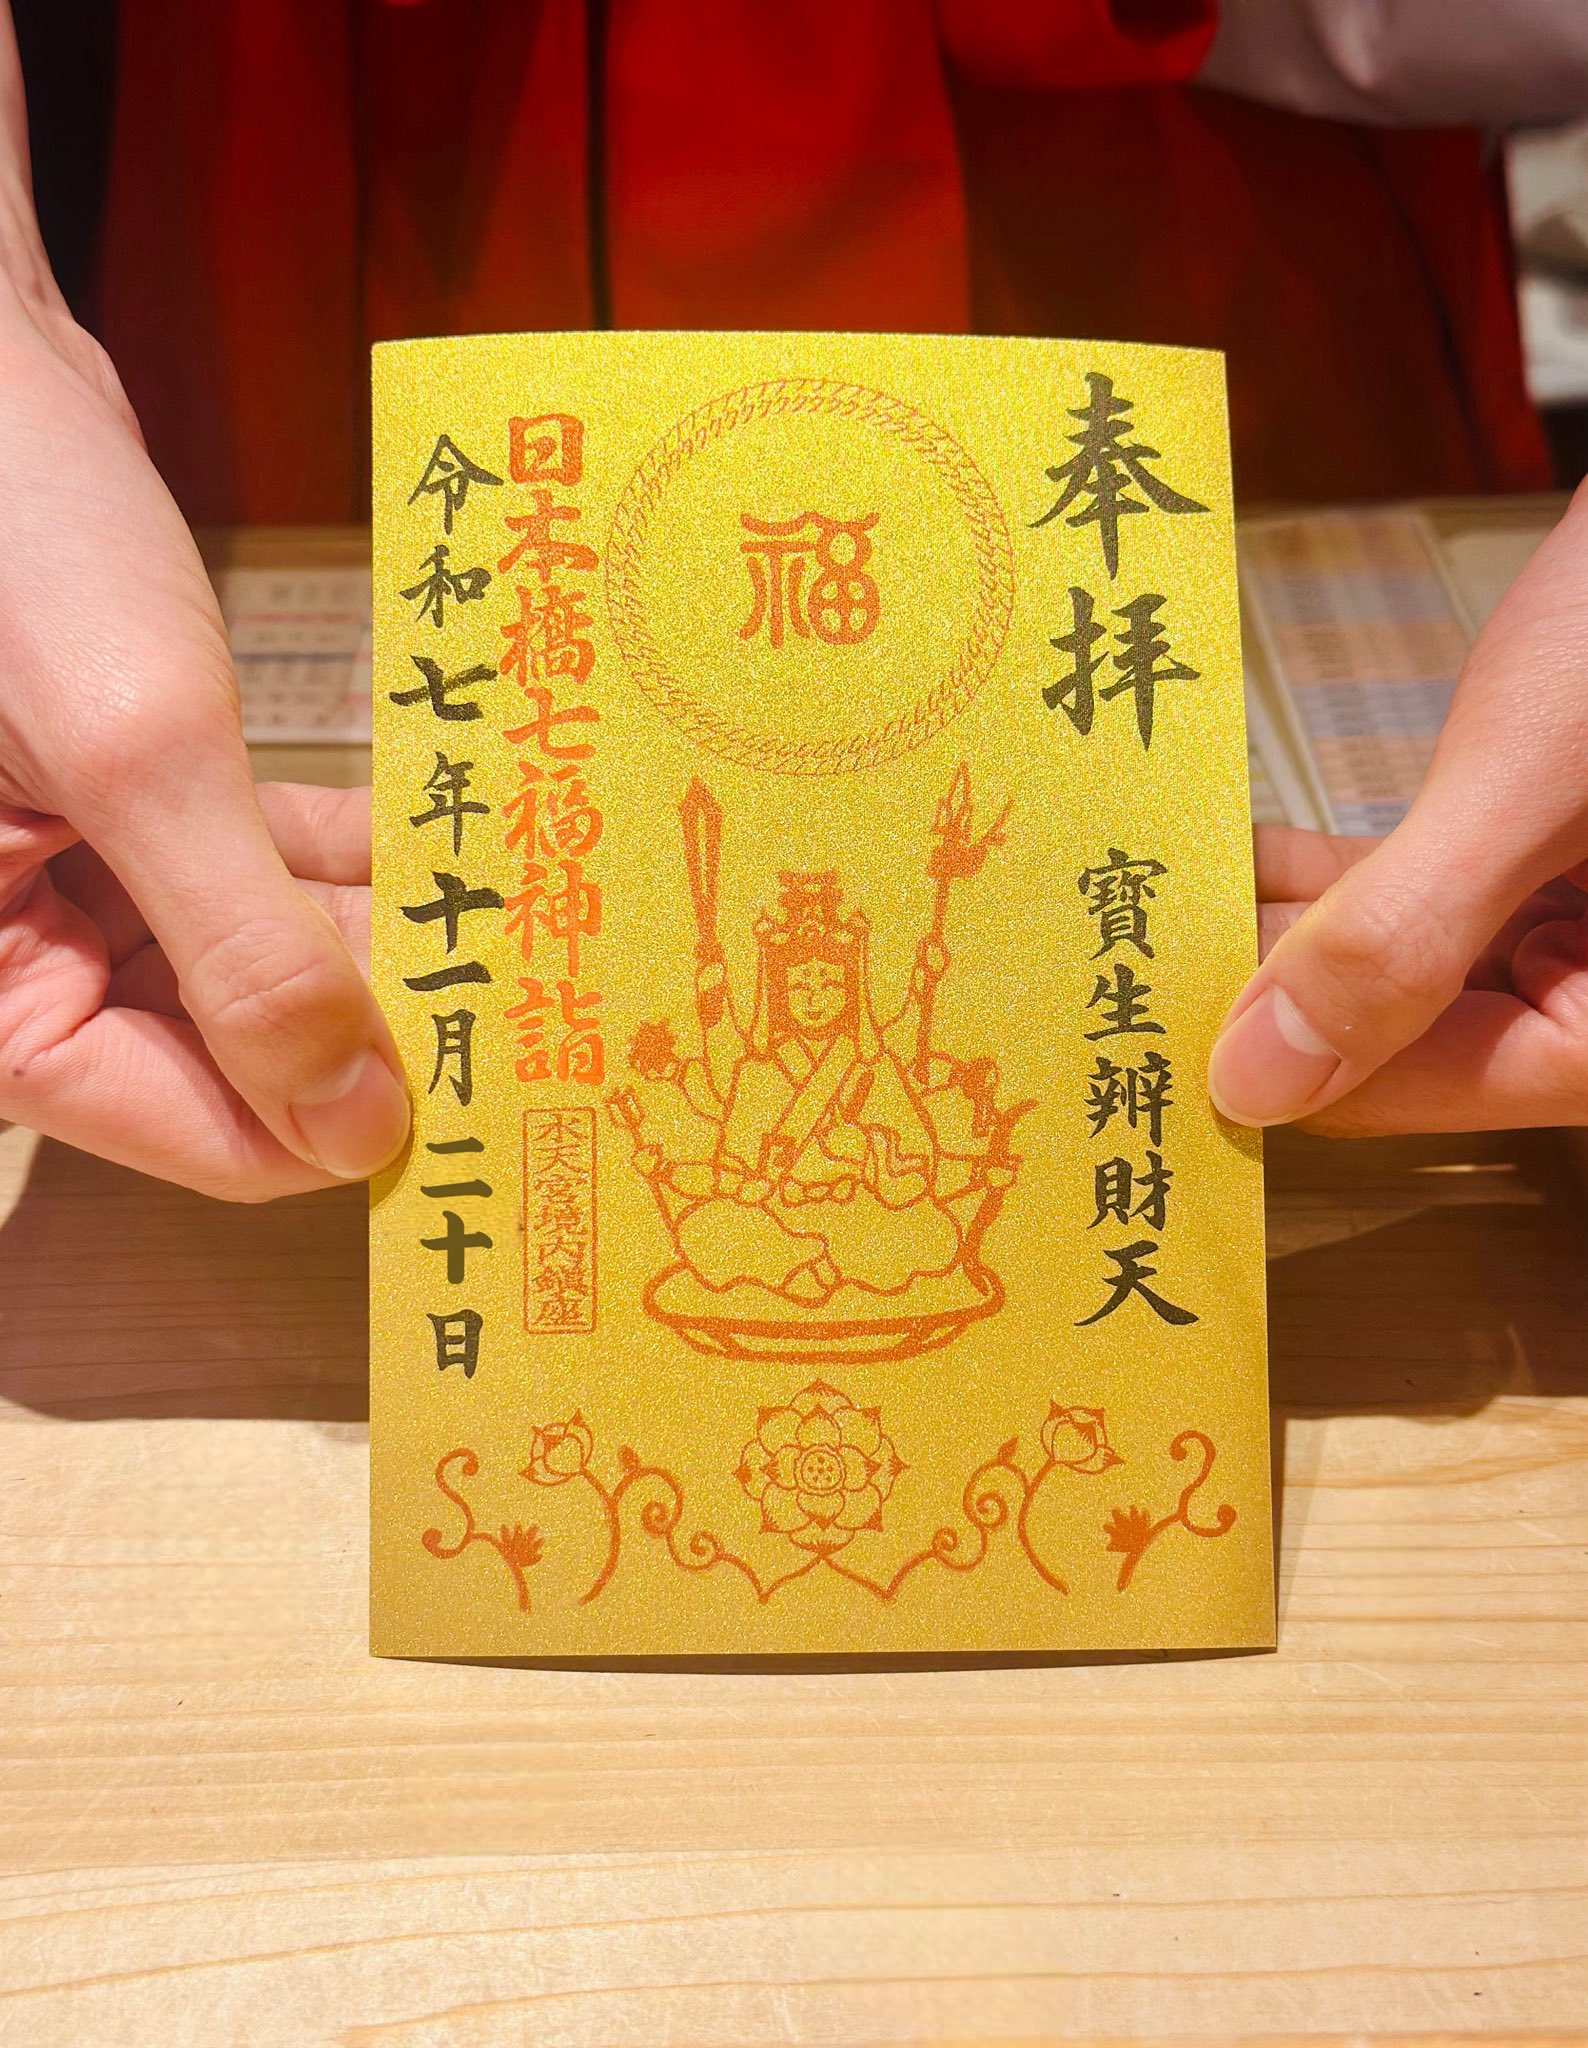 奉拝
寶生辨財天
福
日本橋七福神詣
水天宮境内鎮座
令和七年十一月二十日